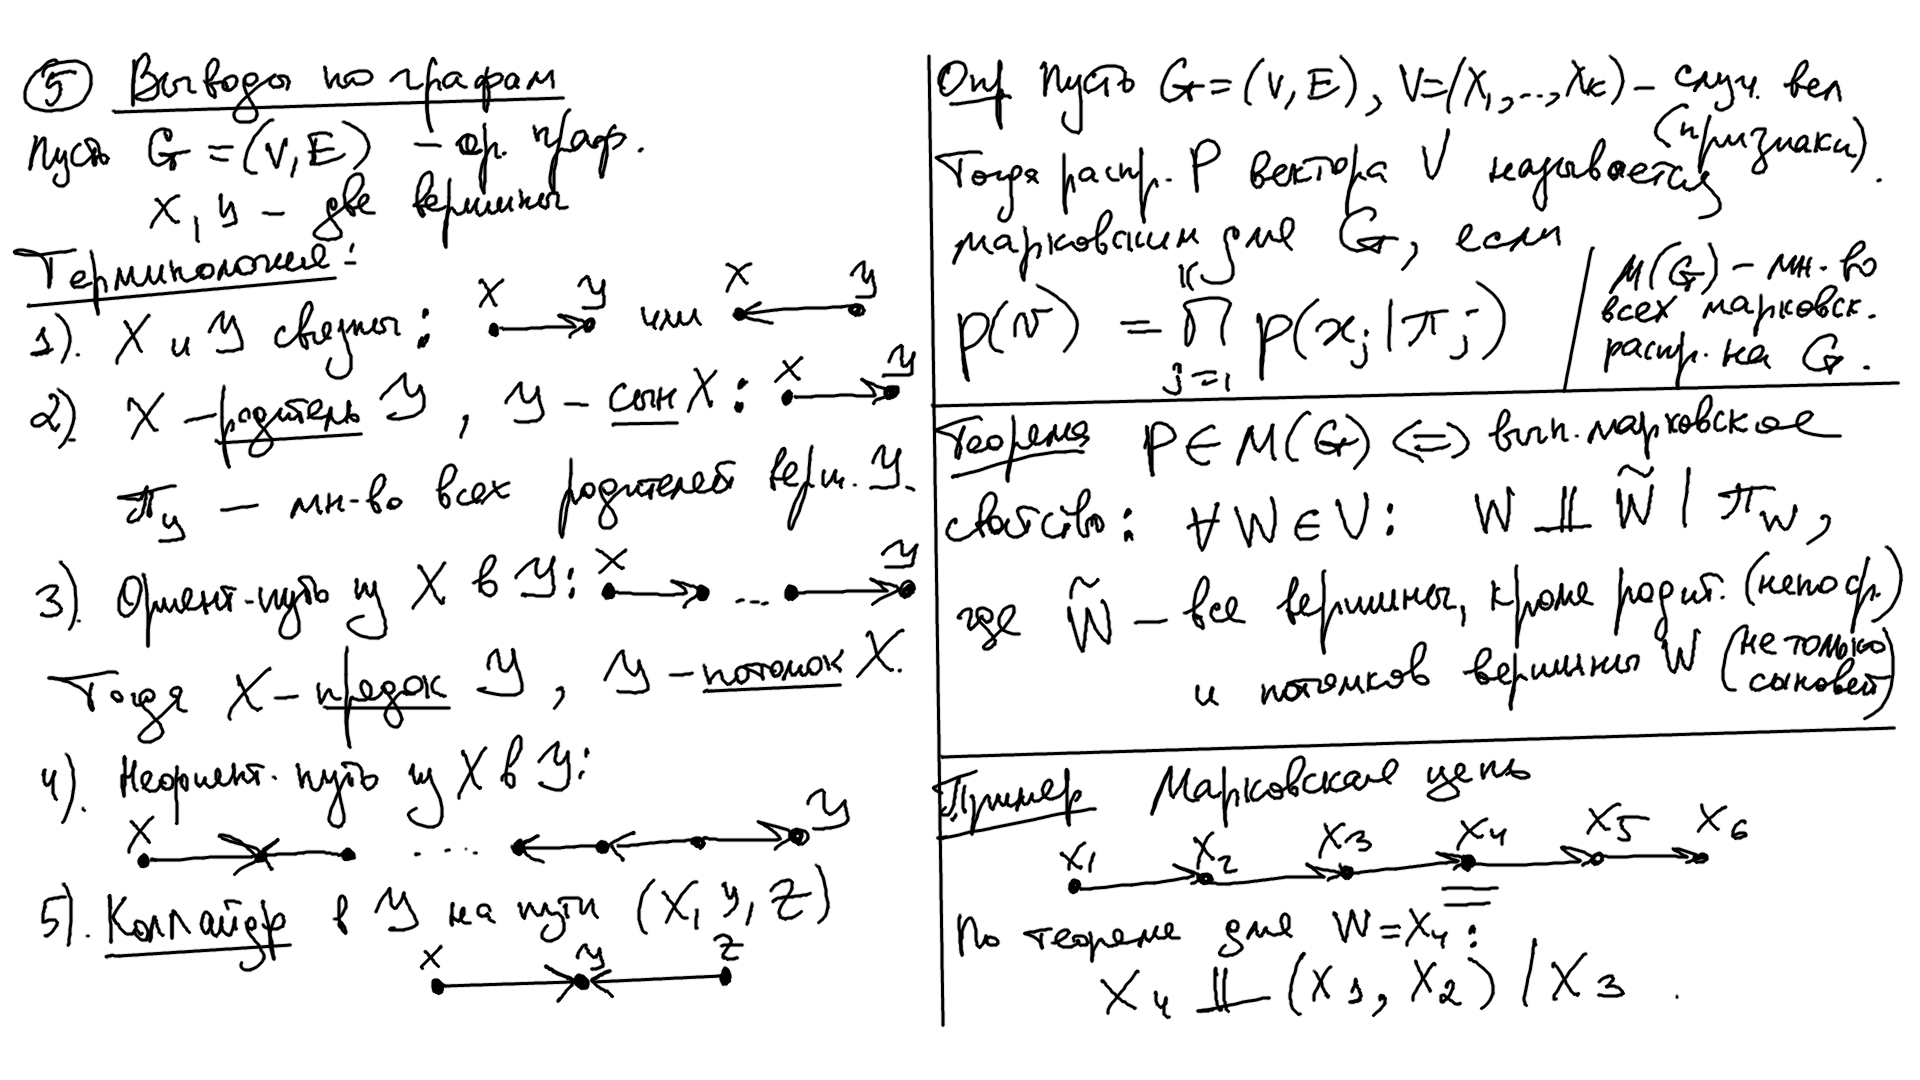 ⑤ Выводы по графам
Пусть G = (V, E) – ор. граф.
X, Y – две вершины
Терминология:
1). X и Y связны: X Y или X Y
2) X – родитель Y, Y – сын X: X Y
π_Y – мн-во всех родителей верш. Y.
3). Ориент. путь из X в Y: X ... Y
Тогда X – предок Y, Y – потомок X.
4). Неориент. путь из X в Y:
X .... Y
5). Коллайдер в Y на пути (X, Y, Z)
X Y Z
Опр Пусть G = (V, E), V = (X₁, ..., X_K) – случ. вел
(признаки).
Тогда распр. P вектора V называется
марковским для G, если
p(v) = ∏_{j=1}^{K} p(x_j | π_j)
M(G) – мн-во
всех марковск.
распр. на G.
Теорема P ∈ M(G) ⇔ вып. марковское
свойство: ∀ W ∈ V: W ⫫ W̃ | π_W,
где W̃ – все вершины, кроме родит. (непоср.)
и потомков вершины W (не только
сыновей)
Пример Марковская цепь
X₁ X₂ X₃ X₄ X₅ X₆
По теореме для W = X₄:
X₄ ⫫ (X₁, X₂) | X₃.